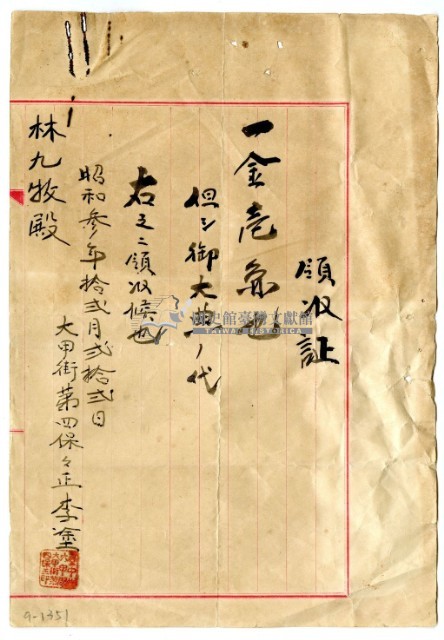 領收証
一金壱円也
但シ御大典ノ代
右正ニ領收候也
昭和參年拾弍月弍拾弍日
大甲街第四保々正李塗
林九牧殿
國史館臺灣文獻館
TAIWAN HISTORICA
9-1351